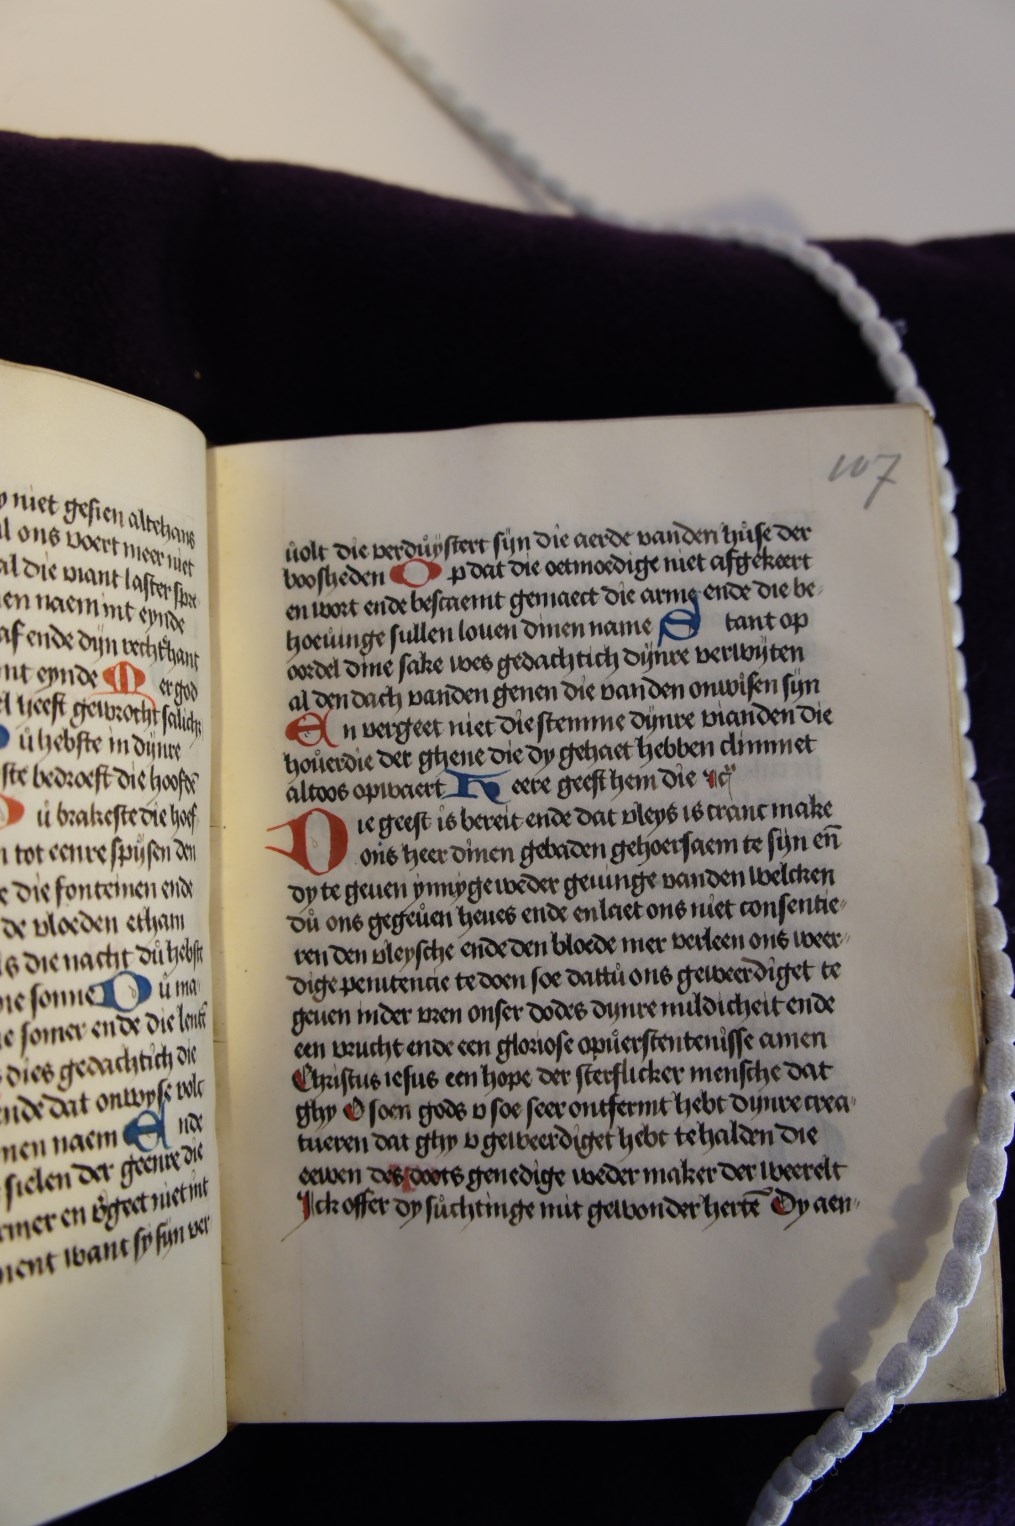 y niet gesien altehans
l ons voert meer niet
al die viant laster spre-
en naem int eynde
af ende dijn rechthant
nt eynde M er god
el heeft gewrocht salich
ů hebste in dijnre
ste bedroeft die hoofde
ů brakeste die hoef
n tot eenre spijsen den
e die fonteinen ende
de vloeden etham
s die nacht dů hebste
ne sonne D ů ma-
e somer ende die lente
dies gedachtich die
nde dat onwyse volc
nen naem E nde
sielen der geenre die
rmer en v'geet niet int
ment want sy sijn ver
107
ůolt die verdůystert sijn die aerde vanden hůse der
boosheden O p dat die oetmoedige niet afgekeert
en wort ende bescaemt gemaect die arme ende die be-
hoeuinge sullen louen dinen name S tant op
oordel dine sake wes gedachtich dijnre verwijten
al den dach vanden genen die vanden onwisen sijn
E n vergeet niet die stemme dijnre vianden die
houerdie der ghene die dy gehaet hebben climmet
altoos opwaert H eere geest hem die
D ie geest is bereit ende dat vleys is cranc make
ons heer dinen gebaden gehoersaem te sijn en̄
dy te geuen ynnyge weder geuinge vanden welcken
dů ons gegeůen heues ende en laet ons niet consentie-
ren den vleysche ende den bloede mer verleen ons weer-
dige penitencie te doen soe dattů ons geweerdiget te
geuen inder vren onser dodes dynre mildicheit ende
een vrucht ende een gloriose opůerstentenisse amen
Christus iesus een hope der sterflicker mensche dat
ghy O soen gods v soe seer ontfermt hebt dynre crea-
tueren dat ghy v geweerdiget hebt te halden die
eewen des doots genedige weder maker der weerelt
Ick offer dy sůchtinge mit gewonder hertē Dy aen-